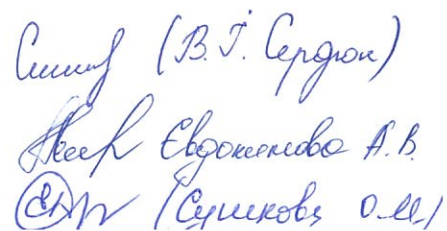 (В.Г. Сердюк)
Евдокимова А.В.
(Сушкова О.М.)